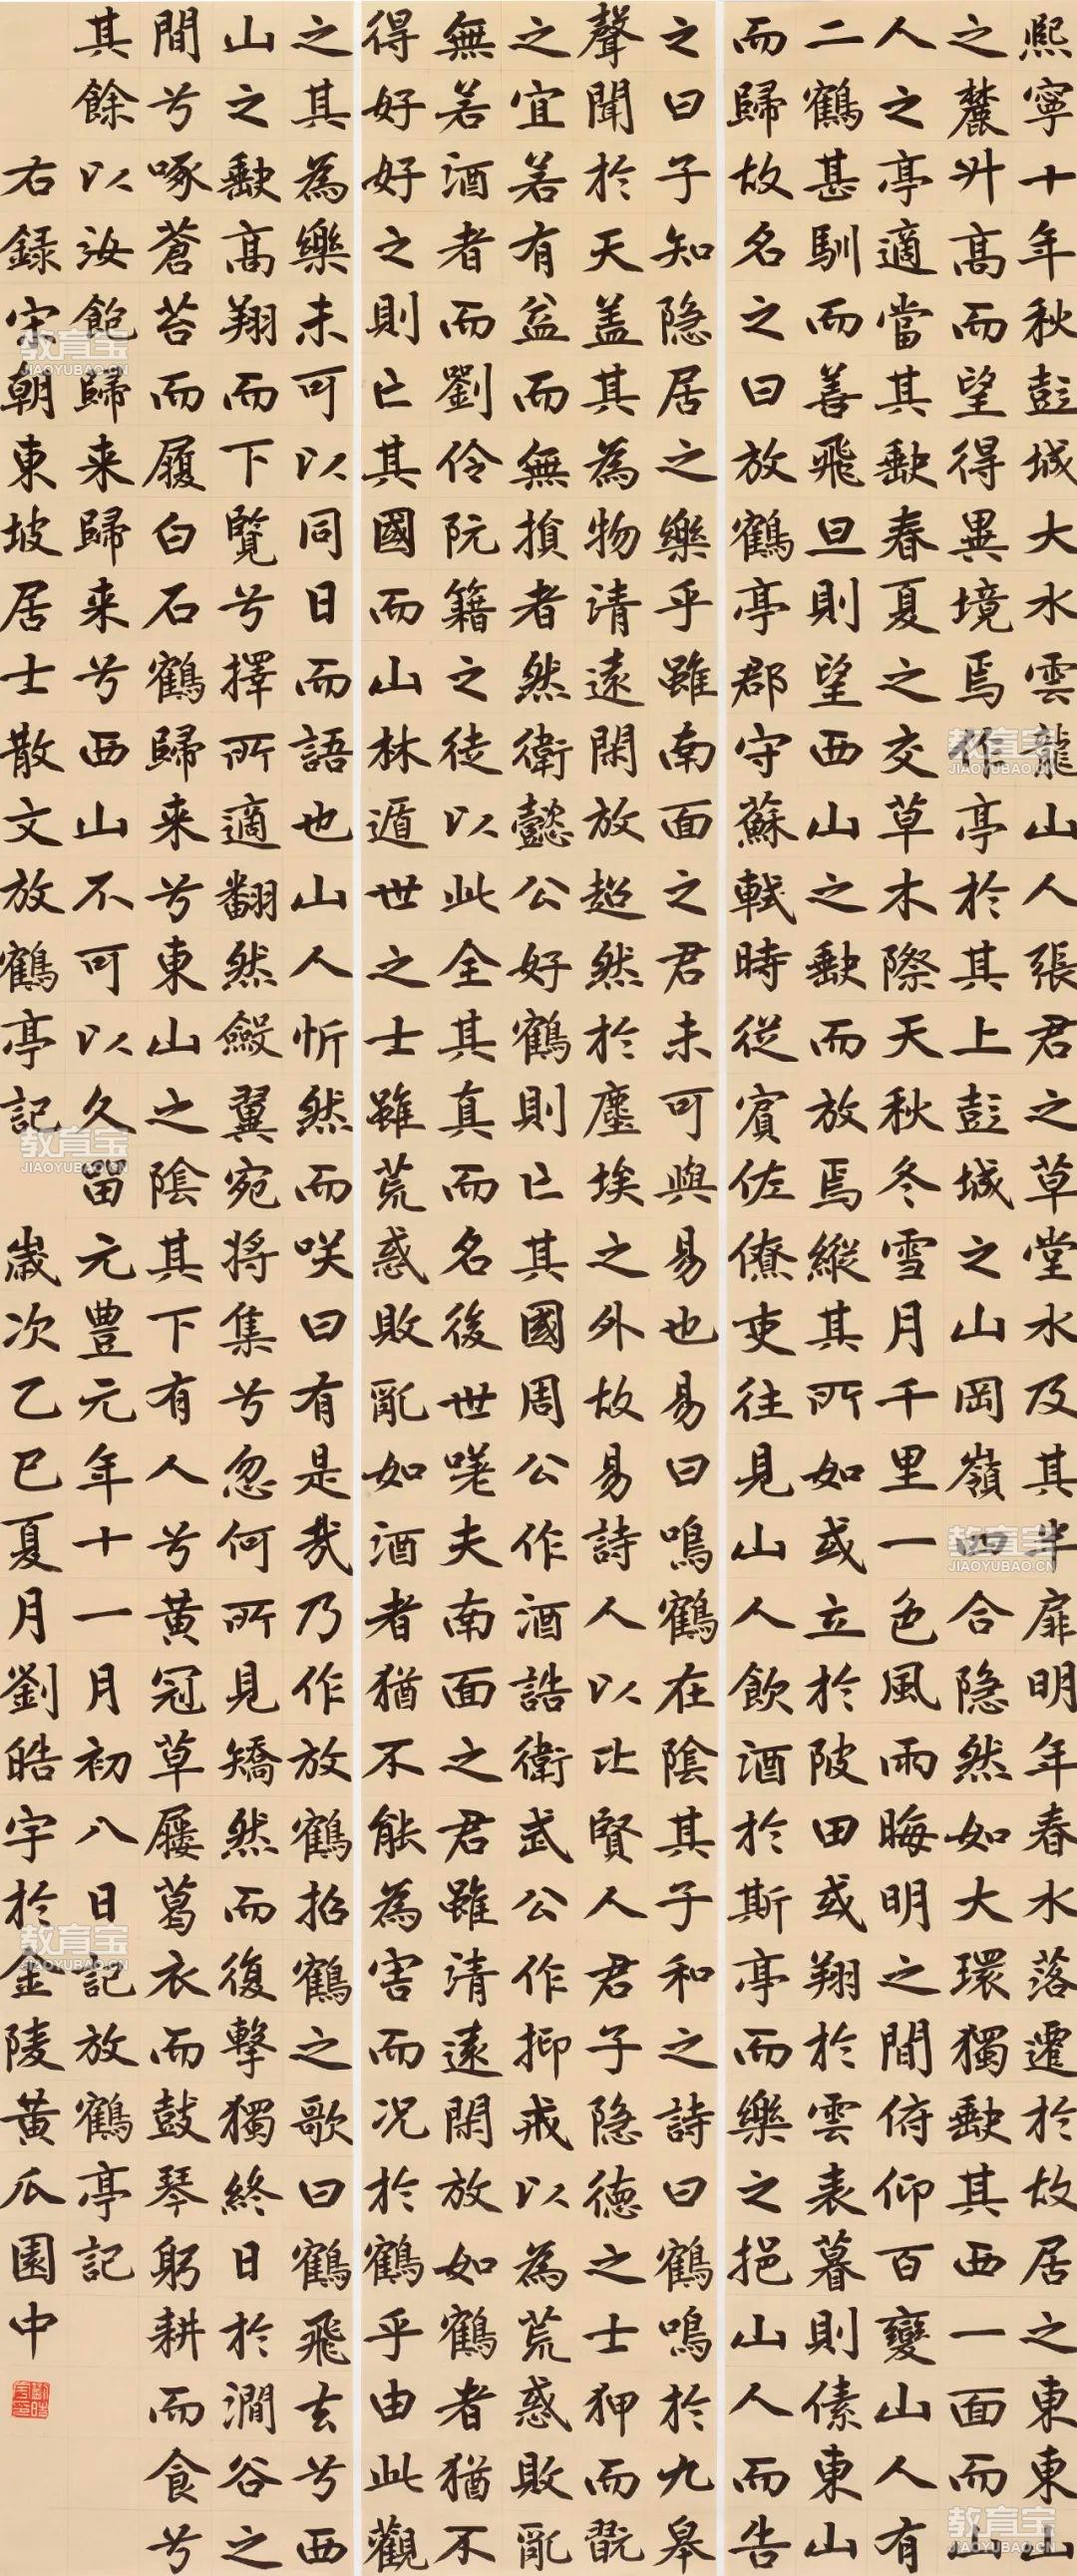 熙寧十年秋彭城大水雲龍山人張君之草堂水及其半扉明年春水落遷於故居之東東山
之麓升高而望得異境焉作亭於其上彭城之山岡嶺四合隐然如大環獨缺其西一面而山
人之亭適當其缺春夏之交草木際天秋冬雪月千里一色風雨晦明之間俯仰百變山人有
二鶴甚馴而善飛旦則望西山之缺而放焉縱其所如或立於陂田或翔於雲表暮則傃東山
而歸故名之曰放鶴亭郡守蘇軾時從賓佐僚吏往見山人飲酒於斯亭而樂之挹山人而告
之曰子知隐居之樂乎雖南面之君未可與易也易曰鳴鶴在陰其子和之詩曰鶴鳴於九皋
聲聞於天盖其為物清遠閑放超然於塵埃之外故易詩人以比賢人君子隐德之士狎而翫
之宜若有益而無損者然衛懿公好鶴則亡其國周公作酒誥衛武公作抑戒以為荒惑敗亂
無若酒者而劉伶阮籍之徒以此全其真而名後世嗟夫南面之君雖清遠閑放如鶴者猶不
得好好之則亡其國而山林遁世之士雖荒惑敗亂如酒者猶不能為害而况於鶴乎由此觀
之其為樂未可以同日而語也山人忻然而笑曰有是哉乃作放鶴招鶴之歌曰鶴飛去兮西
山之缺高翔而下覽兮擇所適翻然斂翼宛將集兮忽何所見矯然而復擊獨終日於澗谷之
間兮啄蒼苔而履白石鶴歸来兮東山之陰其下有人兮黄冠草屨葛衣而鼓琴躬耕而食兮
其餘以汝飽歸来歸来兮西山不可以久留元豊元年十一月初八日記放鶴亭記
右録宋朝東坡居士散文放鶴亭記 歲次乙巳夏月劉皓宇於金陵黄瓜園中
教育宝
JIAOYUBAO.CN
教育宝
JIAOYUBAO.CN
教育宝
JIAOYUBAO.CN
教育宝
JIAOYUBAO.CN
教育宝
JIAOYUBAO.CN
教育宝
JIAOYUBAO.CN